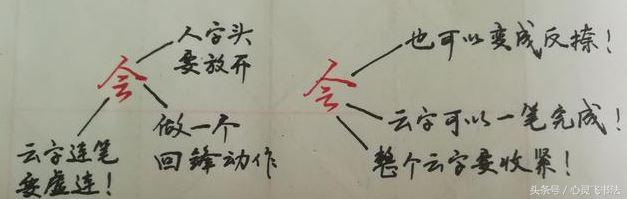 人字头
要放开
会
做一个
回锋动作
云字连笔
要虚连！
也可以变成反捺！
会
云字可以一笔完成！
整个云字要收紧！
头条号 / 心灵飞书法